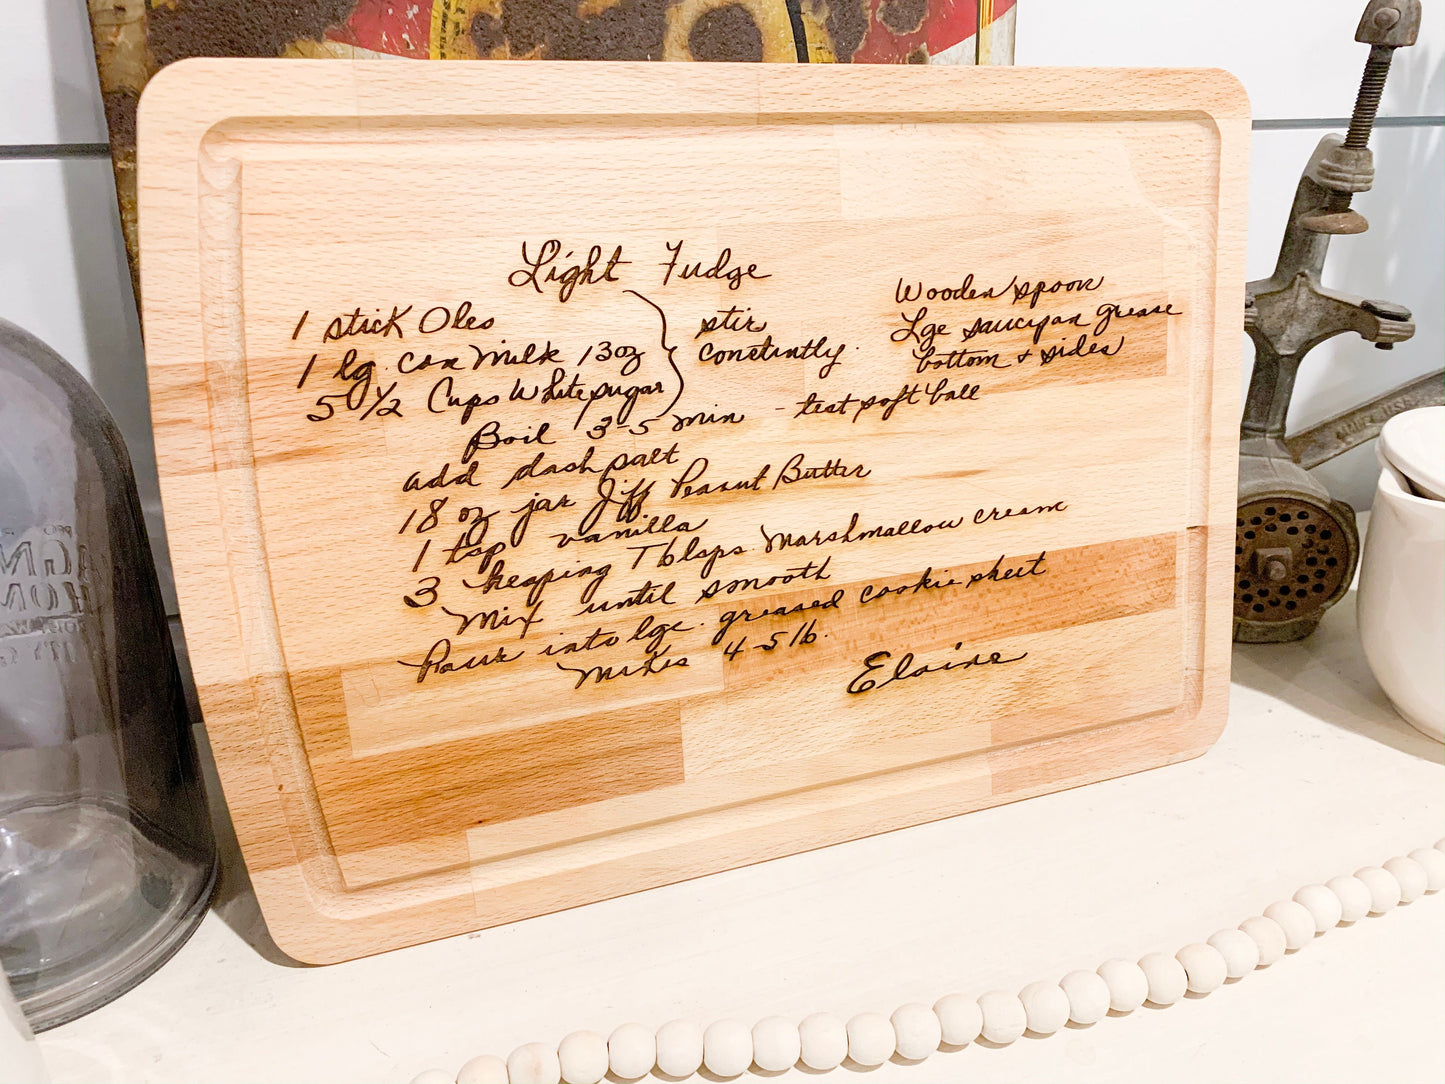 Light Fudge
1 stick Oleo
1 lg. can Milk 13oz
5 1/2 Cups White sugar
stir
constantly.
Wooden spoon
Lge saucepan grease
bottom + sides
Boil 3-5 min - test soft ball
add dash salt
18 oz jar Jiff Peanut Butter
1 tsp vanilla
3 heaping Tblsps. Marshmallow cream
Mix until smooth
Pour into lge. greased cookie sheet
Makes 4-5 lb.
Elaine